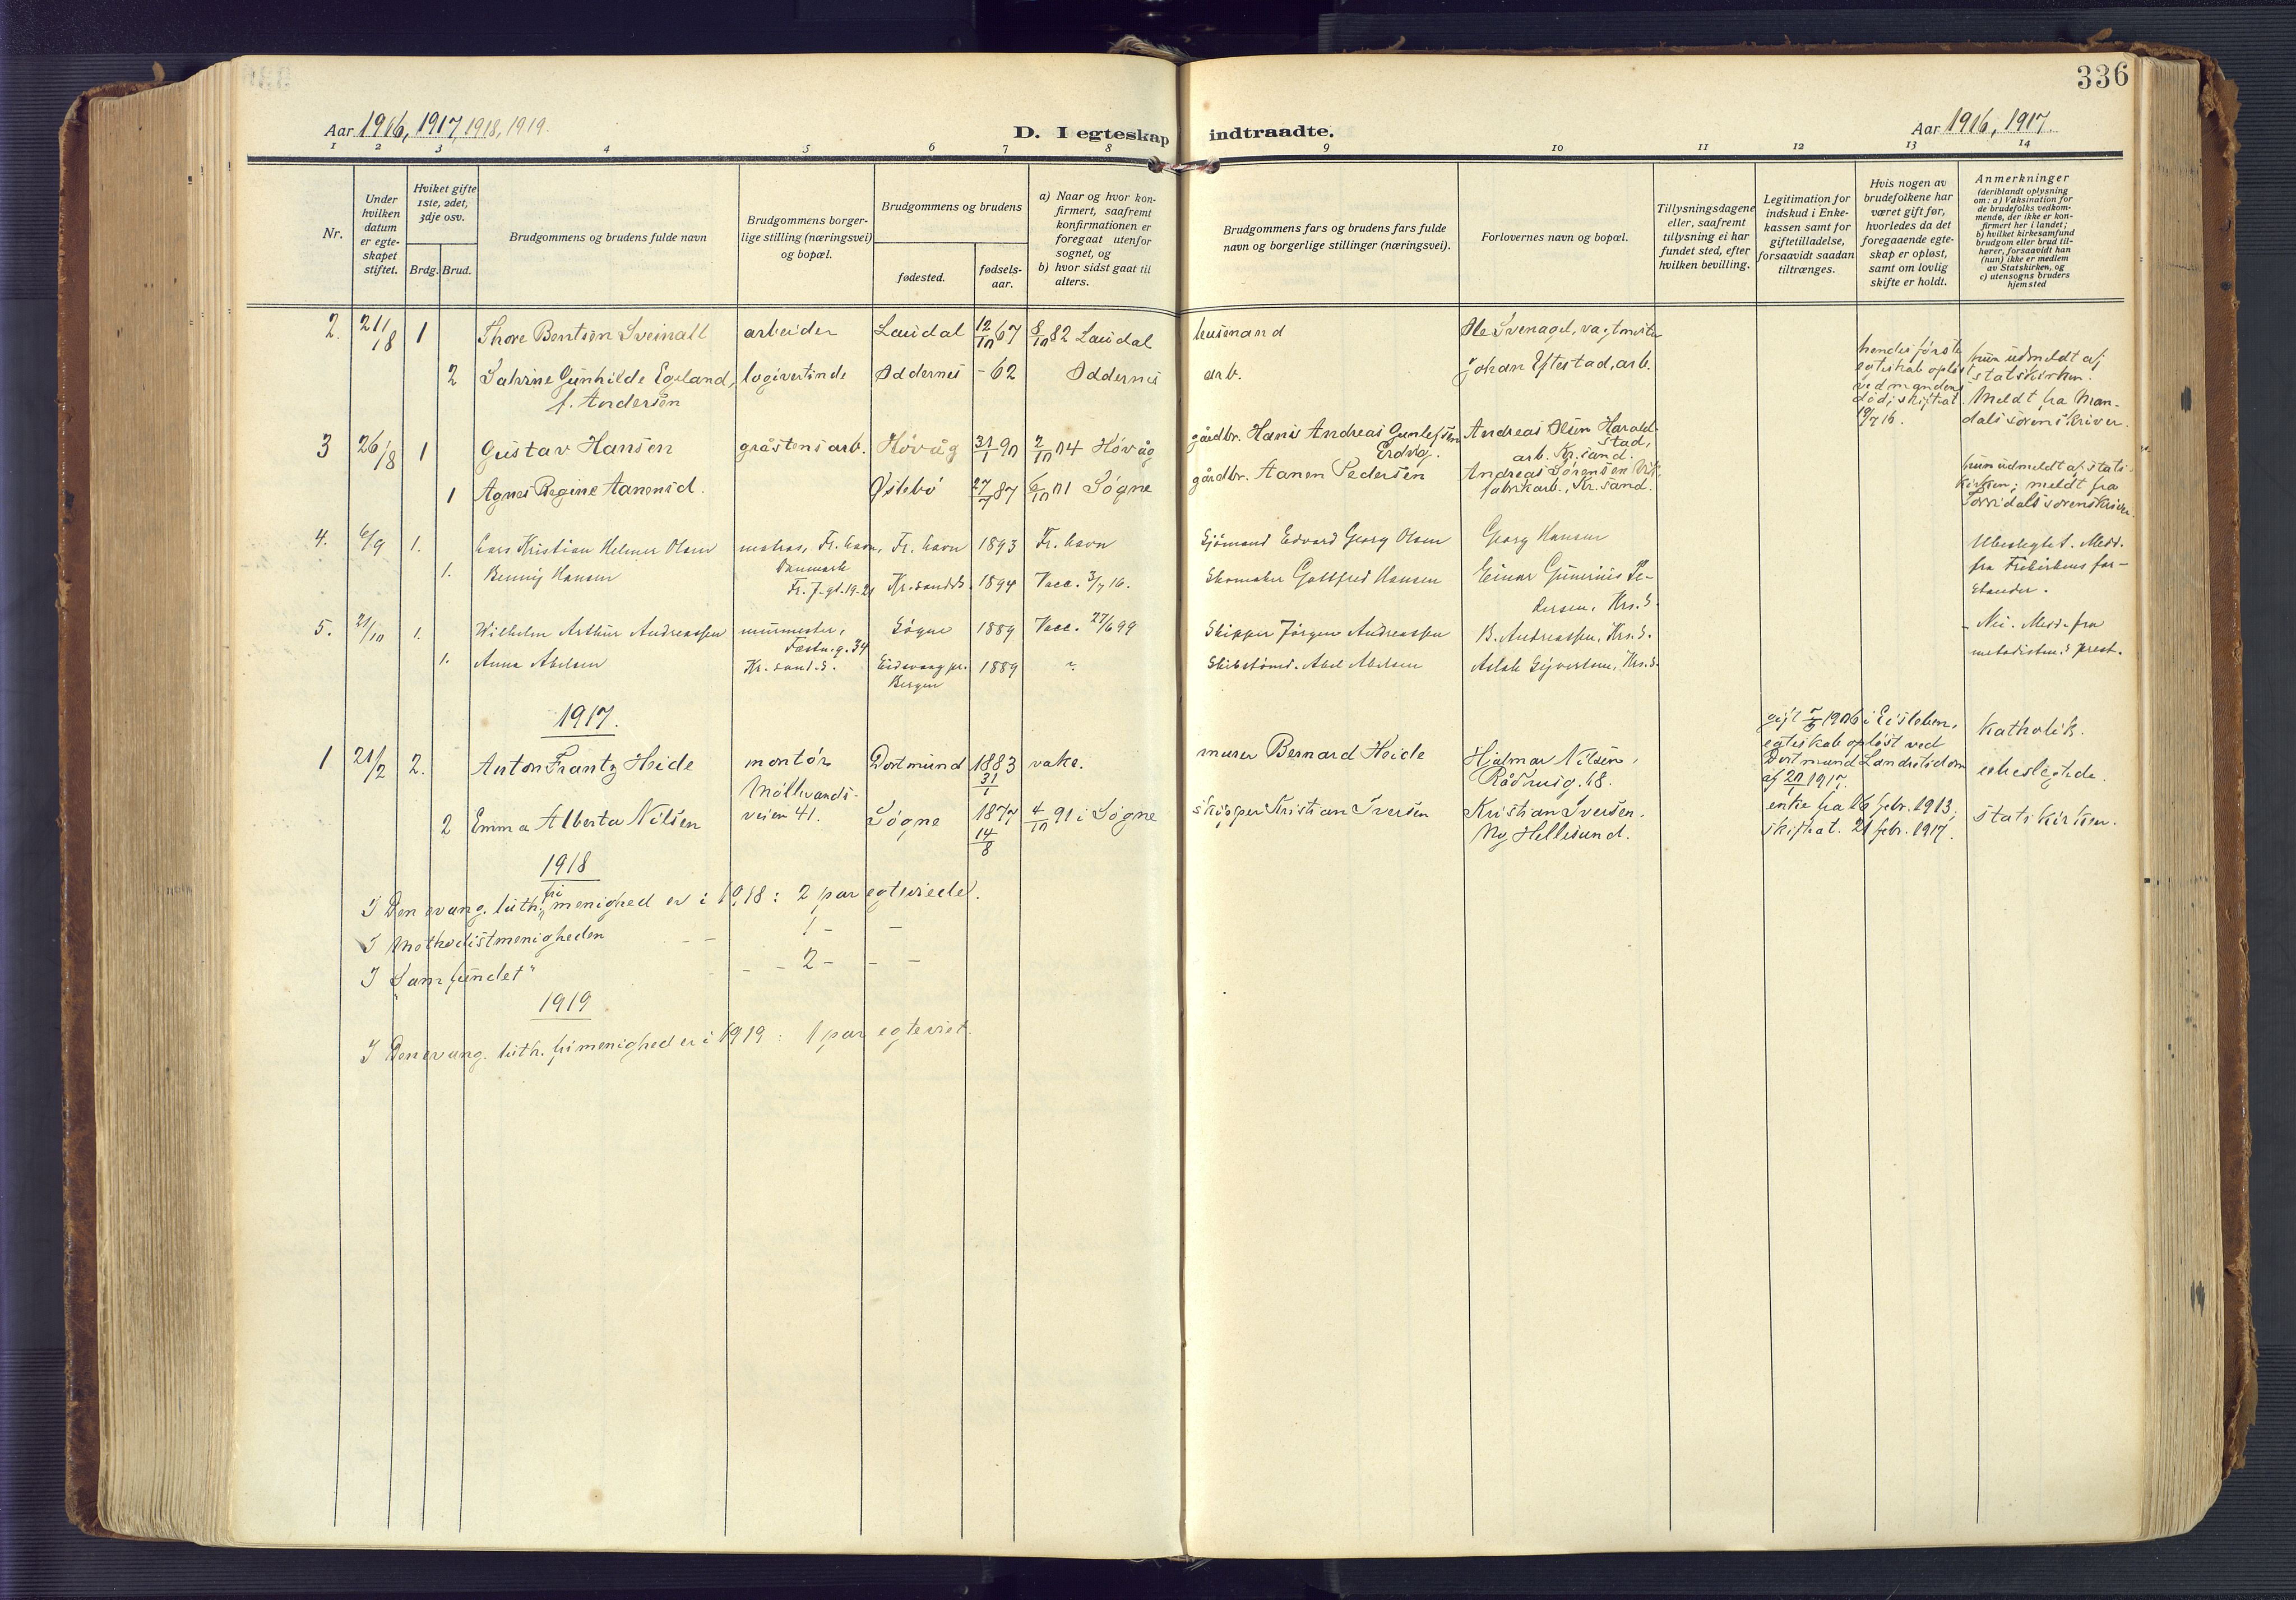 336
Aar 1916, 1917, 1918, 1919.
D. I egteskap indtraadte.
Aar 1916, 1917.
1 2 3 4 5 6 7 8 9 10 11 12 13 14
Nr.
Under hvilken datum er egteskapet stiftet.
Hviket gifte 1ste, 2det, 3dje osv.
Brdg. Brud.
Brudgommens og brudens fulde navn
Brudgommens borgerlige stilling (næringsvei) og bopæl.
Brudgommens og brudens
fødested.
fødselsaar.
a) Naar og hvor konfirmert, saafremt konfirmationen er foregaat utenfor sognet, og
b) hvor sidst gaat til alters.
Brudgommens fars og brudens fars fulde navn og borgerlige stillinger (næringsvei).
Forlovernes navn og bopæl.
Tillysningsdagene eller, saafremt tillysning ei har fundet sted, efter hvilken bevilling.
Legitimation for indskud i Enkekassen samt for giftetilladelse, forsaavidt saadan tiltrænges.
Hvis nogen av brudefolkene har været gift før, hvorledes da det foregaaende egteskap er opløst, samt om lovlig skifte er holdt.
Anmerkninger
(deriblandt oplysning om: a) Vaksination for de brudefolks vedkommende, der ikke er konfirmert her i landet; b) hvilket kirkesamfund brudgom eller brud tilhører, forsaavidt han (hun) ikke er medlem av Statskirken, og c) utensogns bruders hjemsted
2. 21/8 1 Thore Bentsen Sveinall arbeider Laudal 12/10 67 8/10 82 Laudal husmand Ole Svenagel, vagtmester
2 Salvine Gunhilde Egeland, f. Andersen logivertinde Oddernes - 62 Oddernes arb. Johan Eftestad, arb. hendes første egteskab opløst ved mandens død; skifteat. 19/7 16. hun udmeldt af statskirken. Meldt fra Mandals sorenskriver.
3 26/8 1 Gustav Hansen gråstensarb. Høvåg 31/1 90 2/10 04 Høvåg gårdbr. Hans Andreas Gunlefsen Erdvig. Andreas Olsen Haraldstad, arb. Kr.sand.
1 Agnes Regine Aanensd. Østebø 27/7 87 6/10 01 Søgne gårdbr. Aanen Pedersen Andreas Sørensen Vik. fabrikarb., Kr.sand. hun udmeldt af statskirken; meldt fra Torridals sorenskriver.
4. 6/9 1. Lars Kristian Helmer Olsen matros, Fr. havn, Danmark Fr. havn 1893 Fr. havn Sjömand Edvard Georg Olsen Georg Hansen Ubeslegtet. Medd. fra Frikirkens forstander.
1. Benny Hansen Fr. 7. gt. 19-21 Kr.sand S. 1894 Vacc. 3/7 16. Skomaker Gottfred Hansen Einar Gunerius Pedersen, Krs. S.
5. 21/10 1. Wilhelm Arthur Andreassen murmester, Fæstn.g. 34 Søgne 1889 Vacc. 27/6 99 Skipper Jörgen Andreassen B. Andreassen, Krs. S. - Nei. Medd. fra metodistm.s prest.
1. Anna Abelsen Kr. sand. S. Eidsvaag pr. Bergen 1889 Skibstömr. Abel Abelsen Aslak Syvertsen, Krs. S.
1917.
1 21/2 2. Anton Frantz Heide montør Dortmund 1883 31/1 vakc. murer Bernard Heide Hjalmar Nilsen, Rådhusg. 68. gift 5/5 1906 i Eisleben, egteskab opløst ved Dortmund Landretsdom af 20/1 1917. Katholik. ubeslegtede.
2 Emma Alberta Nilsen Möllevandsveien 41. Søgne 1877 14/8 4/10 91 i Søgne skipper Kristian Iversen Kristian Iversen, Ny Hellesund. enke fra 16 febr. 1913; skifteat. 21 febr. 1917. statskirken.
1918
I Den evang. luth. frimenighed er i 1918: 2 par egteviede.
I Methodistmenigheden - - 1 - -
I "Samfundet" - - 2 - - -
1919
I Den evang. luth. frimenighed er i 1919: 1 par egteviet.